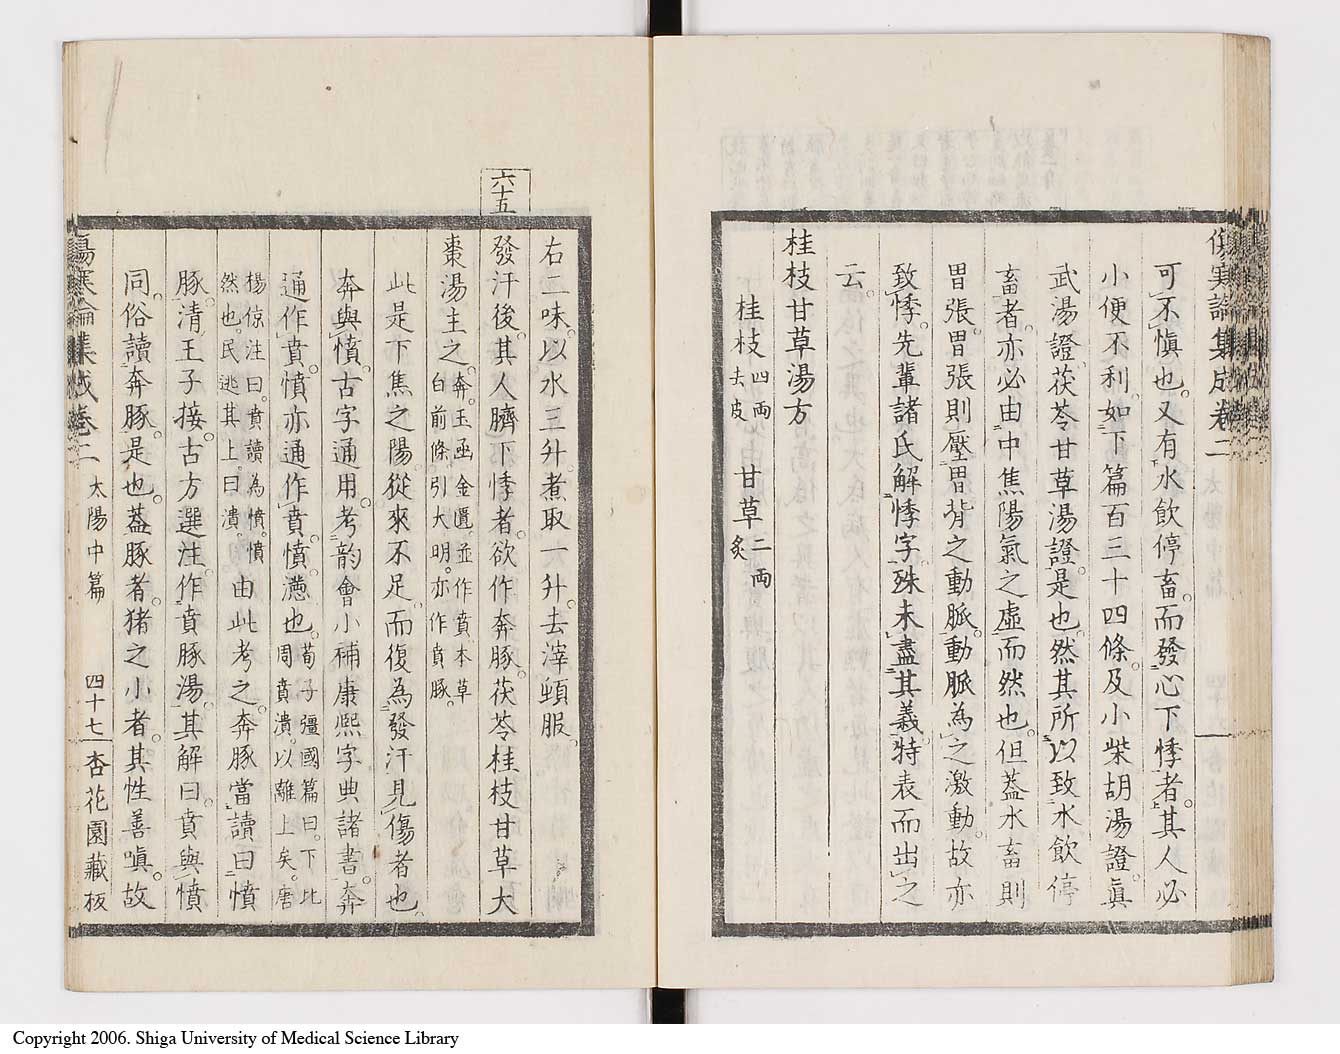 傷寒論集成卷二
可不愼也。又有水飲停畜。而發心下悸者。其人必
小便不利。如下篇百三十四條。及小柴胡湯證。眞
武湯證。茯苓甘草湯證。是也。然其所以致水飲停
畜者。亦必由中焦陽氣之虛而然也。但蓋水畜則
胃張。胃張則壓胃背之動脈。動脈為之激動。故亦
致悸。先輩諸氏解悸字。殊未盡其義。特表而出之
云。
桂枝甘草湯方
桂枝四兩去皮 甘草二兩炙
右二味。以水三升。煮取一升。去滓。頓服。
六十五
發汗後。其人臍下悸者。欲作奔豚。茯苓桂枝甘草大
棗湯主之。奔。玉函金匱。並作賁。本草白前條。引大明。亦作賁豚。
此是下焦之陽。從來不足。而復為發汗見傷者也。
奔與憤。古字通用。考韵會小補康熙字典諸書。奔
通作賁。憤亦通作賁。憤。懣也。荀子彊國篇曰。下比周賁潰。以離上矣。唐
楊倞注曰。賁讀為憤。憤然也。民逃其上。曰潰。由此考之。奔豚當讀曰憤
豚。清王子接古方選注。作賁豚湯。其解曰。賁與憤
同。俗讀奔豚。是也。葢豚者。猪之小者。其性善嗔。故
傷寒論集成卷二 太陽中篇 四十七 杏花園藏板
Copyright 2006. Shiga University of Medical Science Library